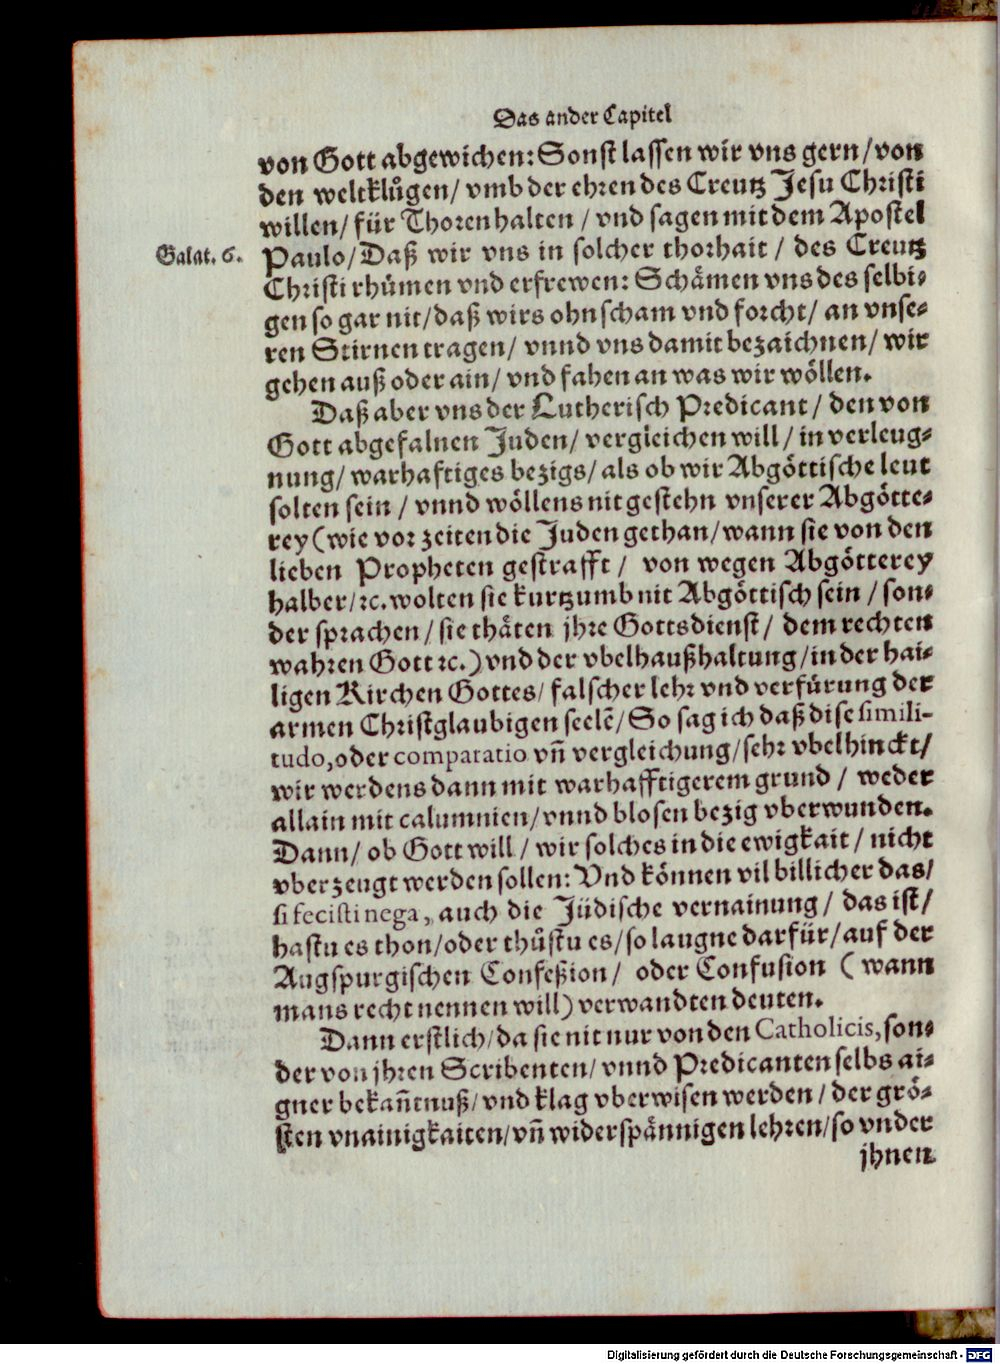 Das ander Capitel
von Gott abgewichen: Sonst lassen wir vns gern/von
den weltklůgen/ vmb der ehren des Creutz Jesu Christi
willen/ für Thoren halten / vnd sagen mit dem Apostel
Galat. 6.
Paulo/ Daß wir vns in solcher thorhait / des Creutz
Christi rhůmen vnd erfrewen: Schämen vns des selbi-
gen so gar nit/ daß wirs ohn scham vnd forcht/ an vnse-
ren Stirnen tragen/ vnnd vns damit bezaichnen/ wir
gehen auß oder ain/ vnd fahen an was wir wöllen.
Daß aber vns der Lutherisch Predicant/ den von
Gott abgefalnen Juden/ vergleichen will/ in verleug-
nung/ warhaftiges bezigs/ als ob wir Abgöttische leut
solten sein / vnnd wöllens nit gestehn vnserer Abgötte-
rey (wie vor zeiten die Juden gethan/ wann sie von den
lieben Propheten gestrafft / von wegen Abgötterey
halber/ꝛc. wolten sie kurtzumb nit Abgöttisch sein / son-
der sprachen/ sie thäten jhre Gottsdienst/ dem rechten
wahren Gott ꝛc.) vnd der vbelhaußhaltung/ in der hai-
ligen Kirchen Gottes/ falscher lehr vnd verfürung der
armen Christglaubigen seelē/ So sag ich daß dise simili-
tudo, oder comparatio vñ vergleichung/ sehr vbelhinckt/
wir werdens dann mit warhafftigerem grund / weder
allain mit calumnien/ vnnd blosen bezig vberwunden.
Dann/ ob Gott will / wir solches in die ewigkait / nicht
vberzeugt werden sollen: Vnd können vil billicher das/
si fecisti nega, auch die Jüdische vernainung/ das ist/
hastu es thon/ oder thůstu es/ so laugne darfür/ auf der
Augspurgischen Confeßion/ oder Confusion (wann
mans recht nennen will) verwandten deuten.
Dann erstlich/ da sie nit nur von den Catholicis, son-
der von jhren Scribenten/ vnnd Predicanten selbs ai-
gner bekañtnuß/ vnd klag vberwisen werden / der grö-
sten vnainigkaiten/ vñ widerspännigen lehren/ so vnder
jhnen
Digitalisierung gefördert durch die Deutsche Forschungsgemeinschaft - DFG